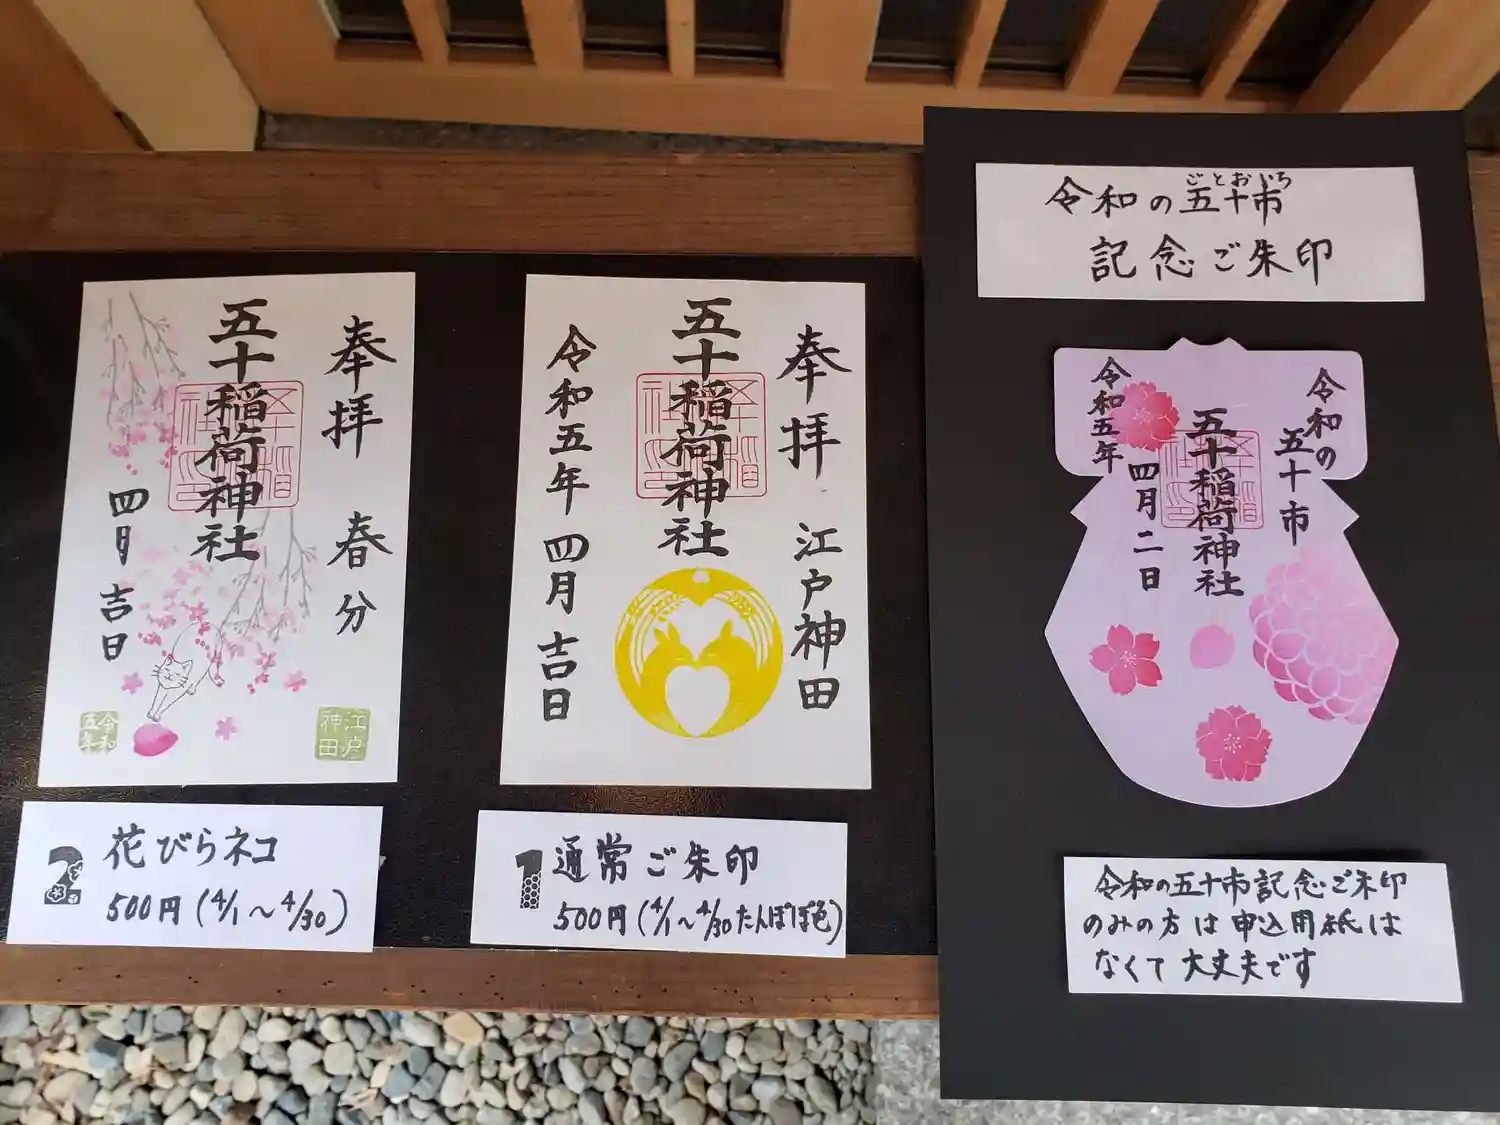 奉拝 春分
五十稲荷神社
四月吉日
江戸
神田
令和
五年
2 花びらネコ
500円(4/1〜4/30)
奉拝 江戸神田
五十稲荷神社
令和五年 四月吉日
1 通常ご朱印
500円(4/1〜4/30たんぽぽ色)
ごとおいち
令和の五十市
記念ご朱印
令和の
五十市
五十稲荷神社
令和五年
四月二日
令和の五十市記念ご朱印
のみの方は申込用紙は
なくて大丈夫です